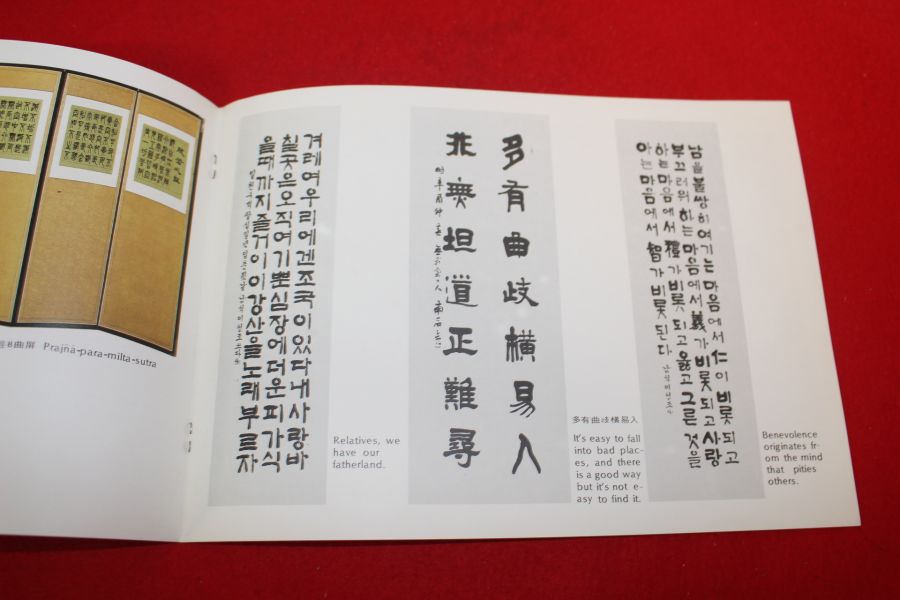 曲屏 Prajna-para-milta-sutra
겨레여우리에겐조국이있다내사랑바
칠곳은오직여기뿐심장에더운피가식
을때까지즐거이이강산을노래부르자
Relatives, we
have our
fatherland.
多有曲歧橫易入
非無坦道正難尋
多有曲歧橫易入
It's easy to fall
into bad plac-
es, and there
is a good way
but it's not e-
asy to find it.
남을불쌍히여기는마음에서仁이비롯되고
부끄러워하는마음에서義가비롯되고사랑
하는마음에서禮가비롯되고옳고그른것을
아는마음에서智가비롯된다
Benevolence
originates fr-
om the mind
that pities
others.